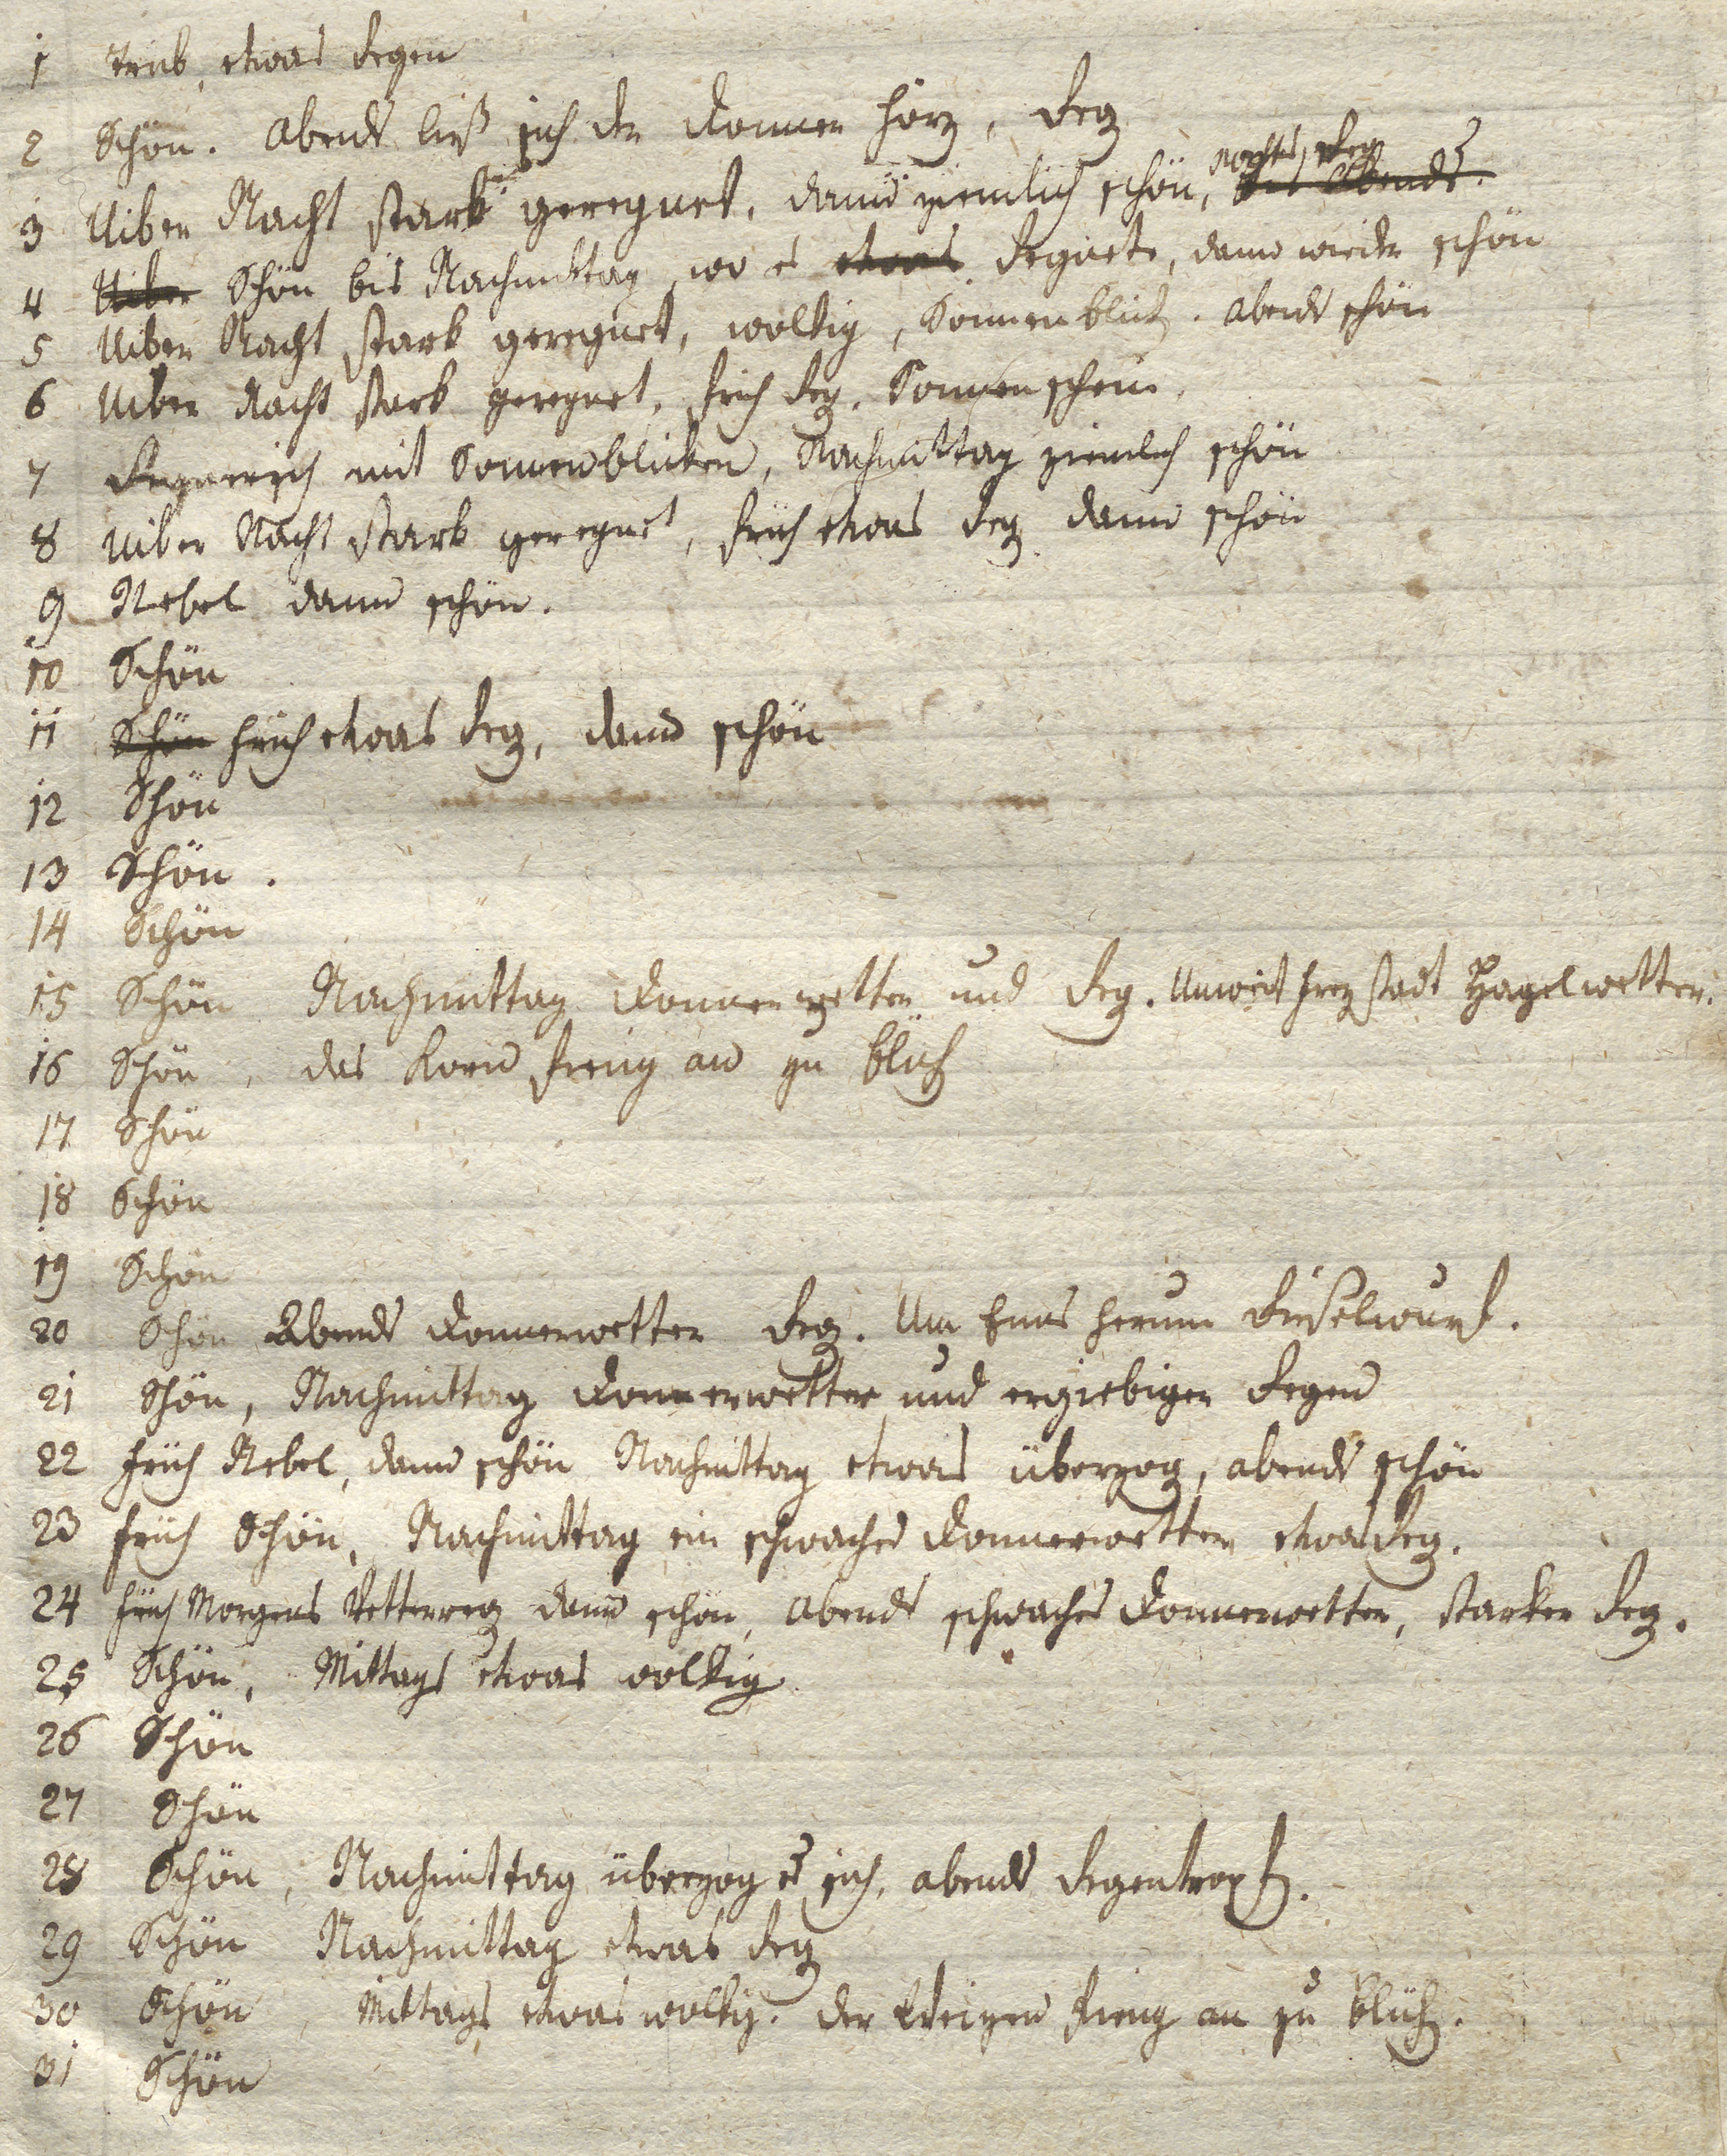 1 trüb, etwas Regen
2 Schön. Abends ließ sich der Donner hörn, Regn
3 Uiber Nacht stark geregnet, dann ziemlich schön, nachts Regn bis Abends.
4 Uiber Schön bis Nachmittag wo es etwas Regnete, dann wieder schön
5 Uiber Nacht stark geregnet, wolkig, Sonnenblick. abends schön
6 Uiber Nacht stark geregnet, früh Regn. Sonnenschein.
7 Regnerisch mit Sonnenblicken, Nachmittag ziemlich schön
8 Uiber Nacht stark geregnet, früh etwas Regn dann schön
9 Nebel dann schön.
10 Schön
11 Schön früh etwas Regn, dann schön
12 Schön
13 Schön.
14 Schön
15 Schön Nachmittag Donnerwetter und Regn. Unweit Freystadt Hagelwetter.
16 Schön, das Korn fieng an zu blüh
17 Schön
18 Schön
19 Schön
20 Schön Abends Donnerwetter Regn. Um Enns herum Rieselwurf.
21 Schön, Nachmittag Donnerwetter und ergiebiger Regen
22 früh Nebel, dann schön Nachmittag etwas überzog, abends schön
23 früh Schön, Nachmittag ein schwaches Donnerwetter etwas Regn.
24 früh Morgens dann schön, abends schwaches Donnerwetter, starker Regn.
25 Schön, Mittags etwas wolkig
26 Schön
27 Schön
28 Schön, Nachmittag überzog es sich, abends Regentropf.
29 Schön Nachmittag etwas Regn
30 Schön, Mittags etwas wolkig. der Weizen fieng an zu blüh.
31 Schön